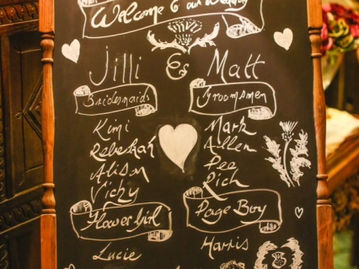 Welcome to our Wedding
Jilli & Matt
Bridesmaids Groomsmen
Kimi Mark
Rebekah Allen
Alison Dee
Vichy Rich
Flower Girl Page Boy
Lucie Harris